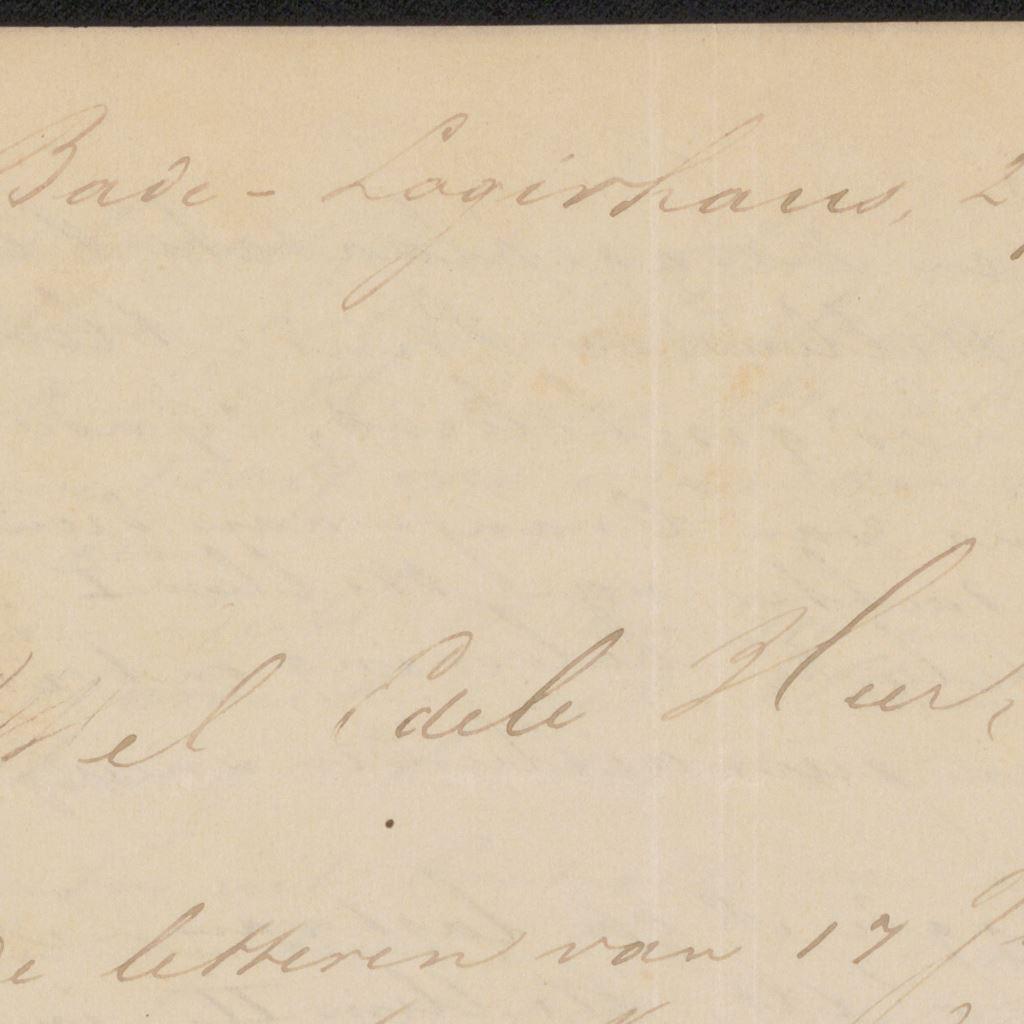 Bade-Logirhaus, 2
Wel Edele Heer,
De letteren van 17